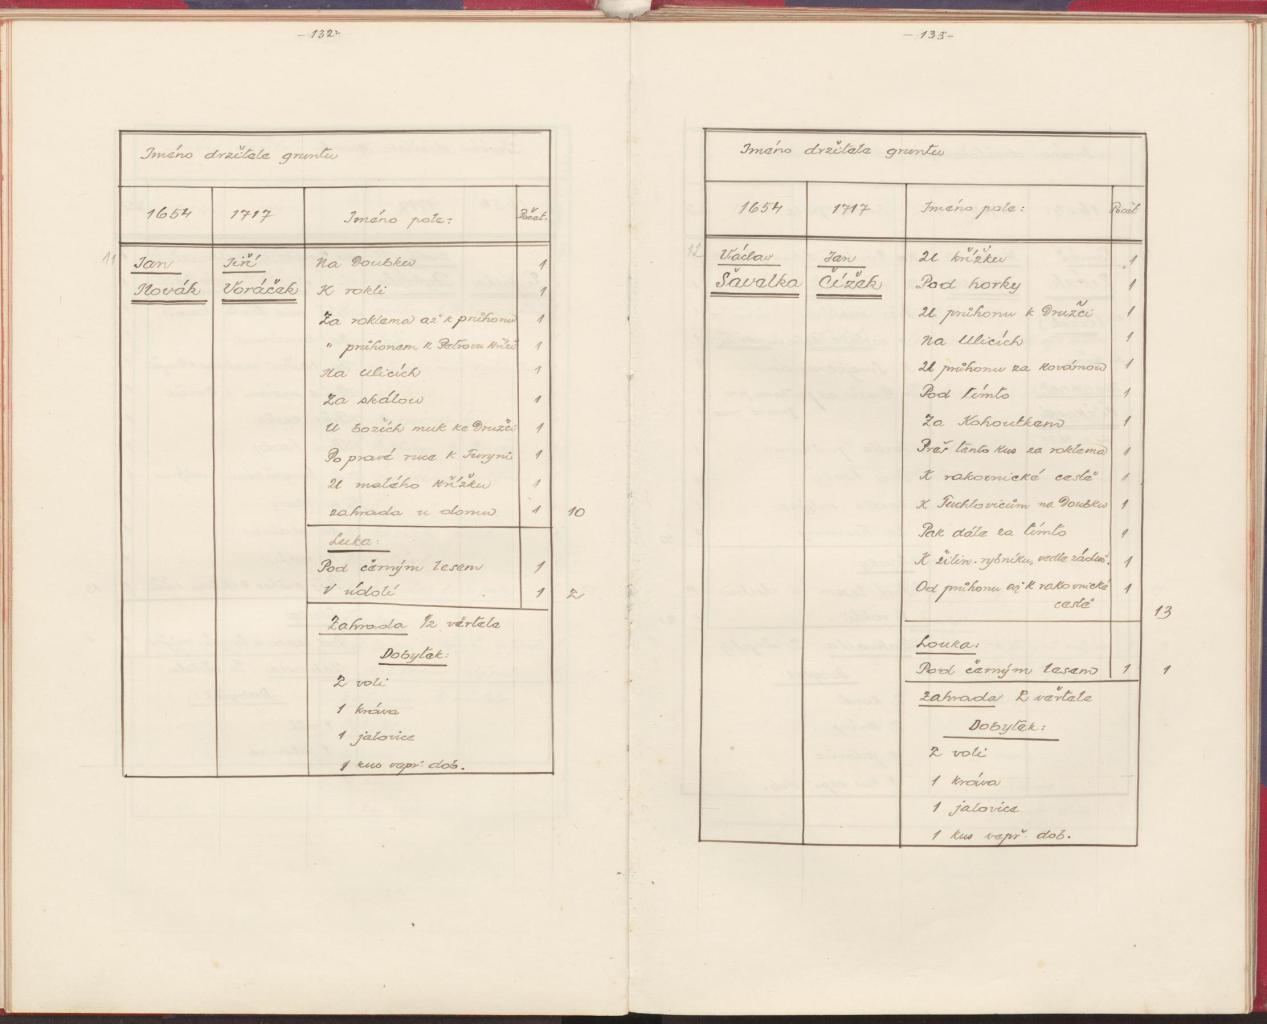 - 132 -
Jméno držitele gruntu
1654 1717 Jméno pole: Počet.
11 Jan Jiří Na Doubku 1
Novák Voráček K rokli 1
Za roklema až k průhonu 1
" průhonem k Petrovu kříži 1
Na Ulicích 1
Za skálou 1
U božích muk ke Družci 1
Po pravé ruce k Turyni 1
U malého křížku 1
zahrada u domu 1 10
Luka:
Pod černým lesem 1
V údolí 1 2
Zahrada ½ věrtele
Dobytek:
2 voli
1 kráva
1 jalovice
1 kus vepř. dob.
- 133 -
Jméno držitele gruntu
1654 1717 Jméno pole: Počet
12 Václav Jan U křížku 1
Šavelka Čížek Pod horky 1
U průhonu k Družci 1
Na Ulicích 1
U průhonu za kovárnou 1
Pod tímto 1
Za Kohoutkem 1
Přes tento kus za roklema 1
K rakovnické cestě 1
K Tuchlovicům na Doubku 1
Pak dále za tímto 1
K žilin. rybníku, vedle záduš. 1
Od průhonu až k rakovnické 1
cestě 13
Louka:
Pod černým lesem 1 1
Zahrada 2 věrtele
Dobytek:
2 voli
1 kráva
1 jalovice
1 kus vepř. dob.